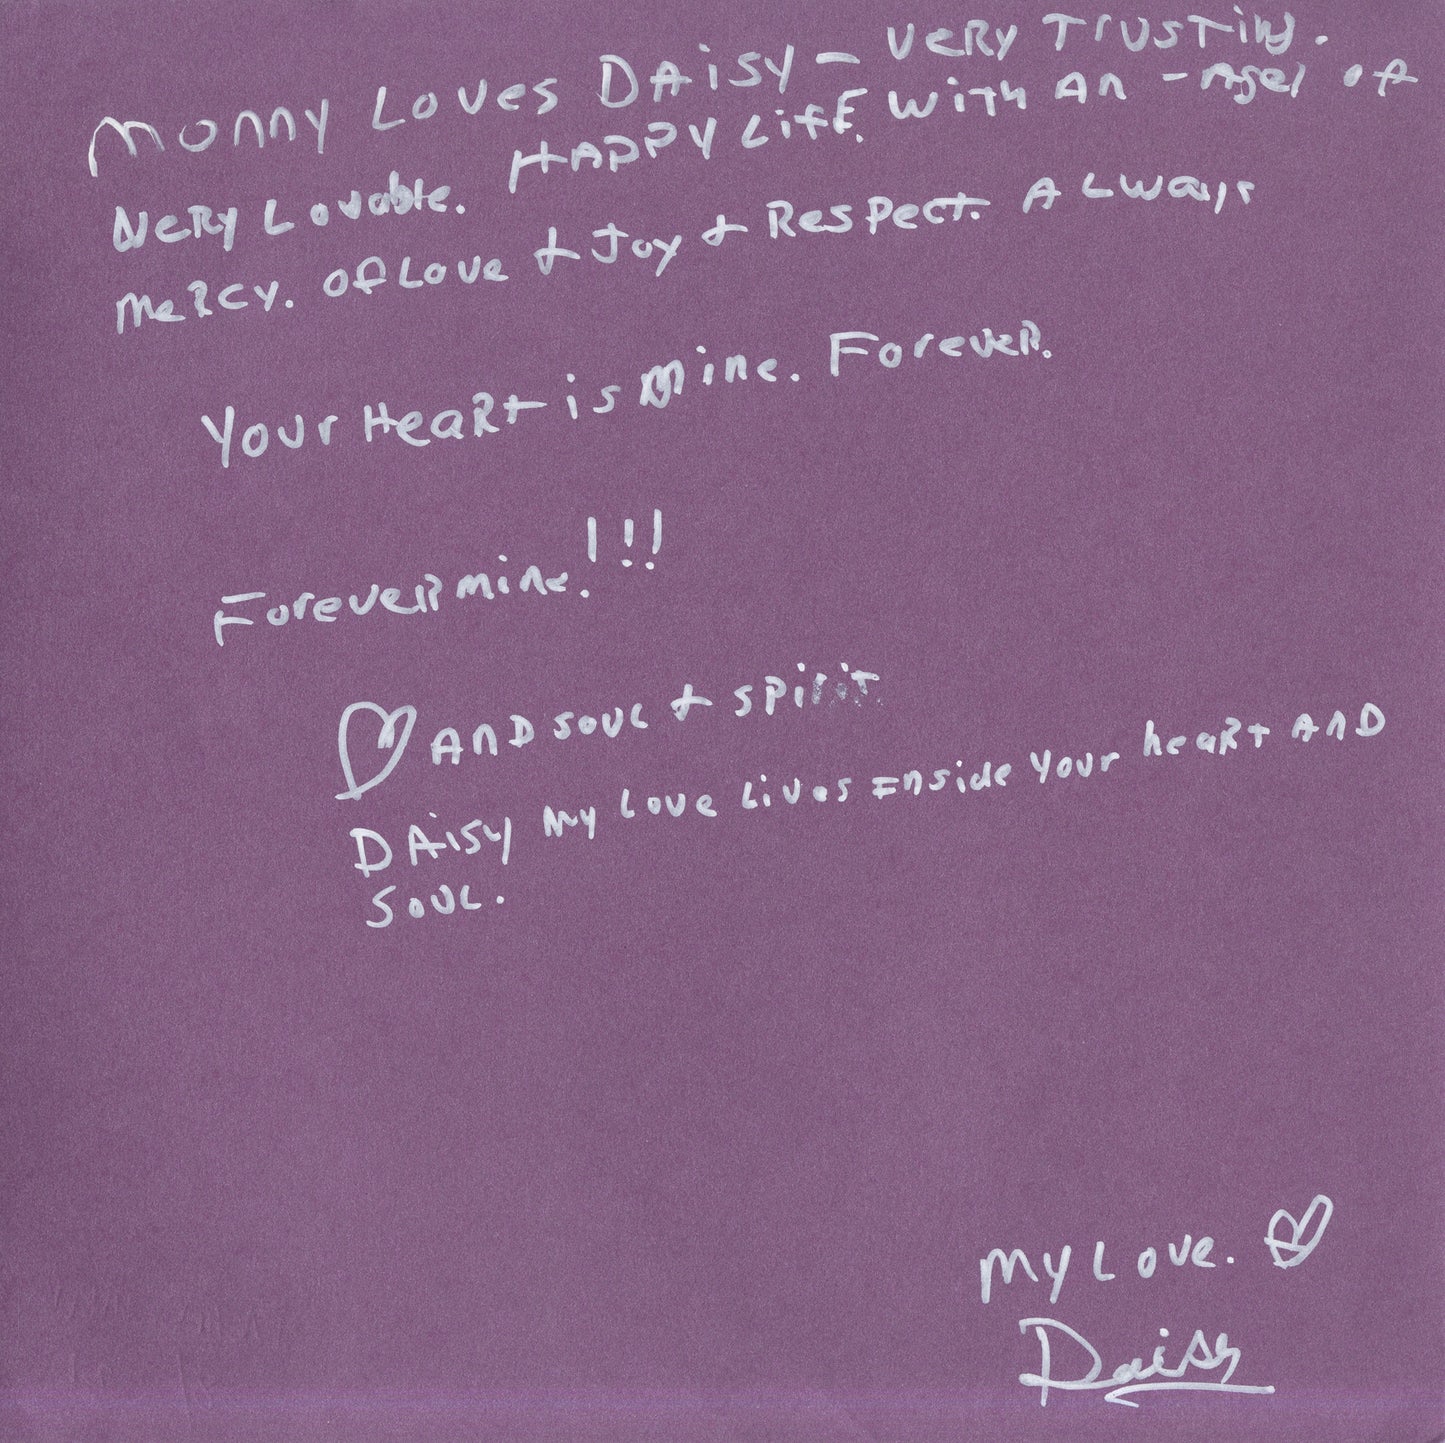 Monny Loves DAisy – VeRy TrusTing.
VeRy Lovable. HAPPY LifE. With An - Agel of
MeRcy. of Love + Joy + Respect. ALways
Your HeaRt is Mine. Forever.
Forever mine.!!!
♡ AnD souL + spirit
DAisy My Love Lives Inside Your heaRt AnD
SouL.
My Love. ♡
Daisy